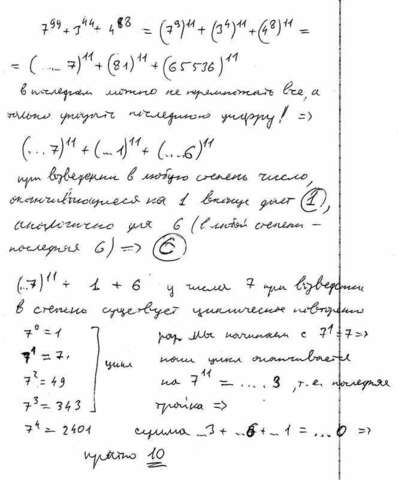 7^99 + 3^44 + 4^88 = (7^9)^11 + (3^4)^11 + (4^8)^11 =
= (....7)^11 + (81)^11 + (65536)^11
в последнем можно не перемножать все, а
только увидеть последнюю цифру! =>
(...7)^11 + (...1)^11 + (...6)^11
при возведении в любую степень число,
оканчивающиеся на 1 даст 1,
аналогично для 6 (в любой степени –
последняя 6) => 6
(..7)^11 + 1 + 6 у числа 7 при возведении
в степень существует циклическое повторение
7^0 = 1 раз мы начинаем с 7^1 = 7 =>
7^1 = 7. цикл цикл оканчивается
7^2 = 49 на 7^11 = .... 3, т.е. последняя
7^3 = 343 тройка =>
7^4 = 2401 сумма ..3 + ...6 + ..1 = ....0 =>
кратно 10